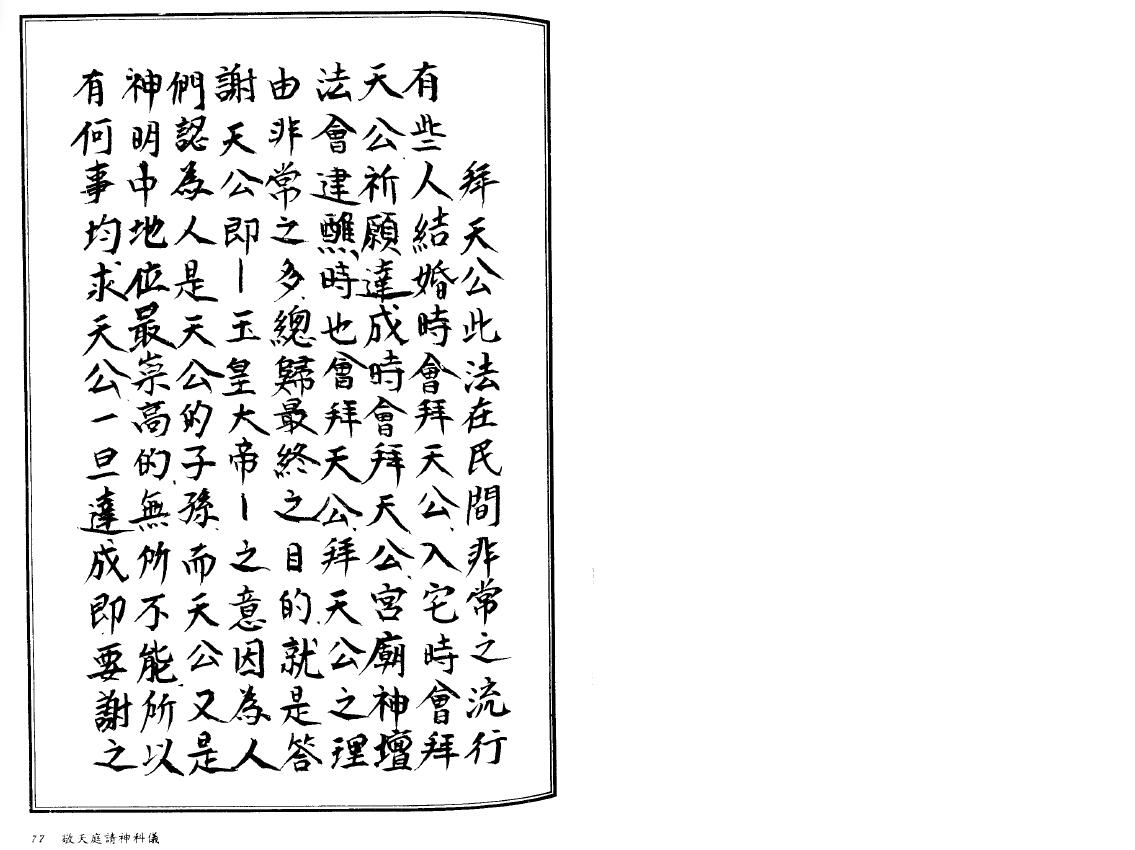 拜天公此法在民間非常之流行
有些人結婚時會拜天公入宅時會拜
天公祈願達成時會拜天公宮廟神壇
法會建醮時也會拜天公拜天公之理
由非常之多總歸最終之目的就是答
謝天公即－玉皇大帝－之意因為人
們認為人是天公的子孫而天公又是
神明中地位最崇高的無所不能所以
有何事均求天公一旦達成即要謝之
77 敬天庭請神科儀